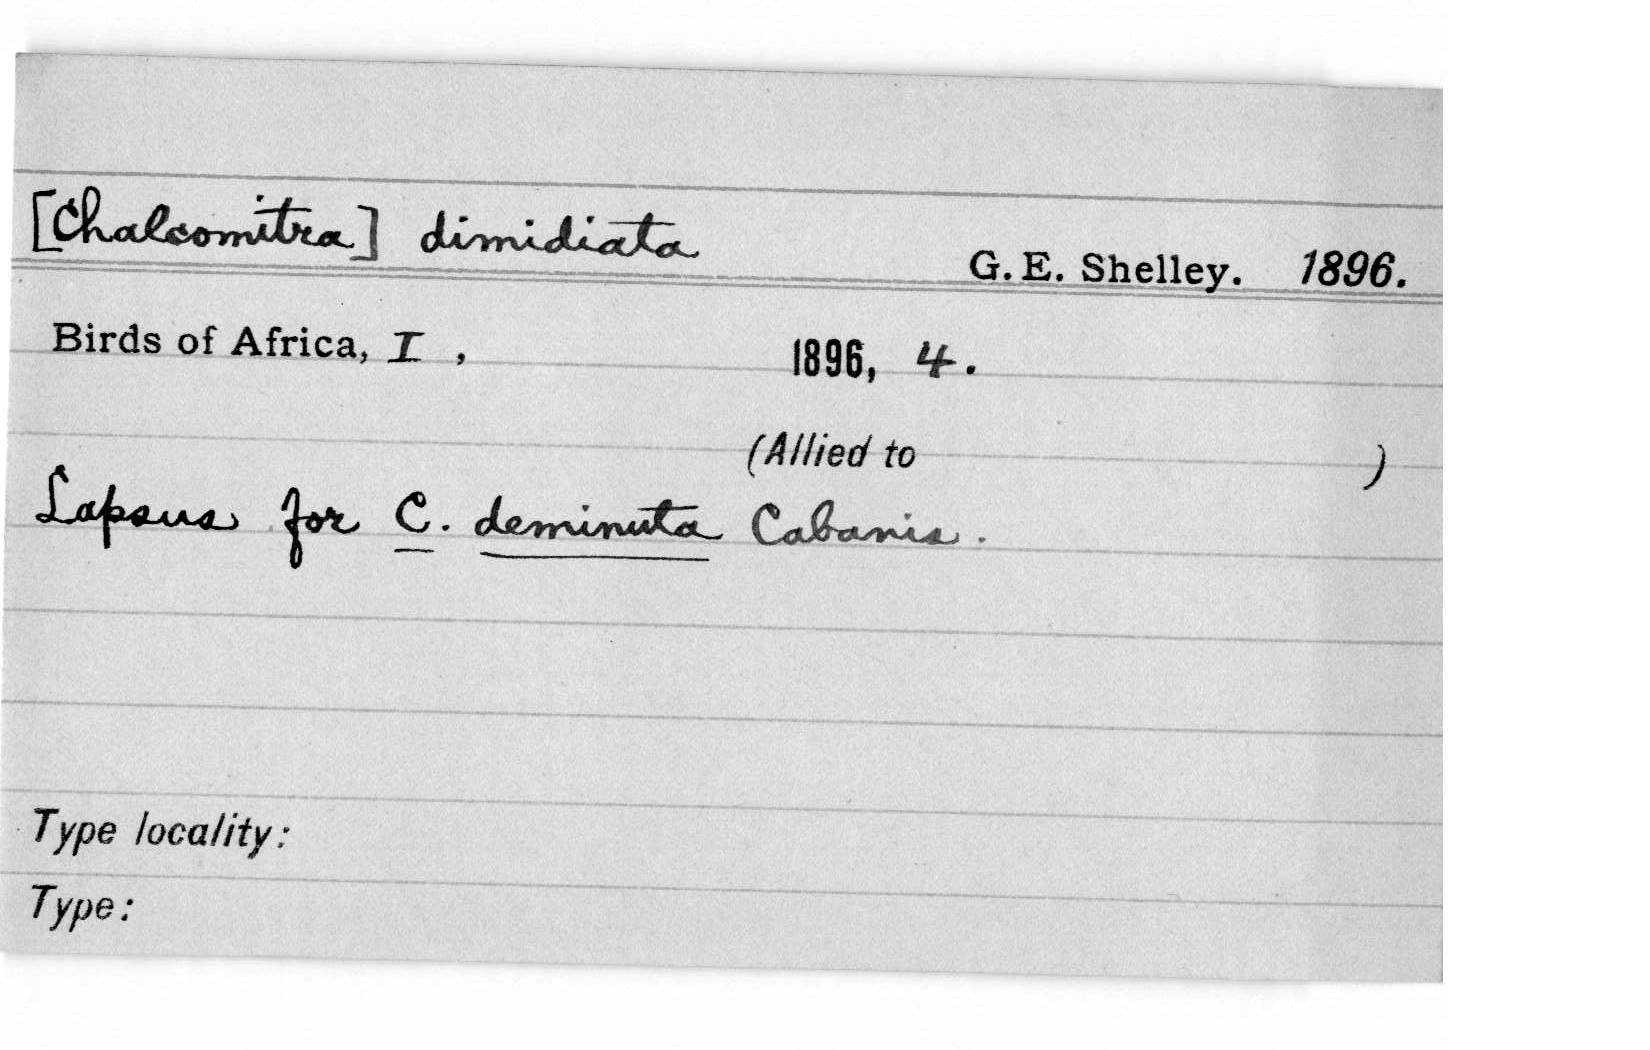 [Chalcomitra] dimidiata
G. E. Shelley. 1896.
Birds of Africa, I , 1896, 4.
(Allied to )
Lapsus for C. deminuta Cabanis.
Type locality:
Type: